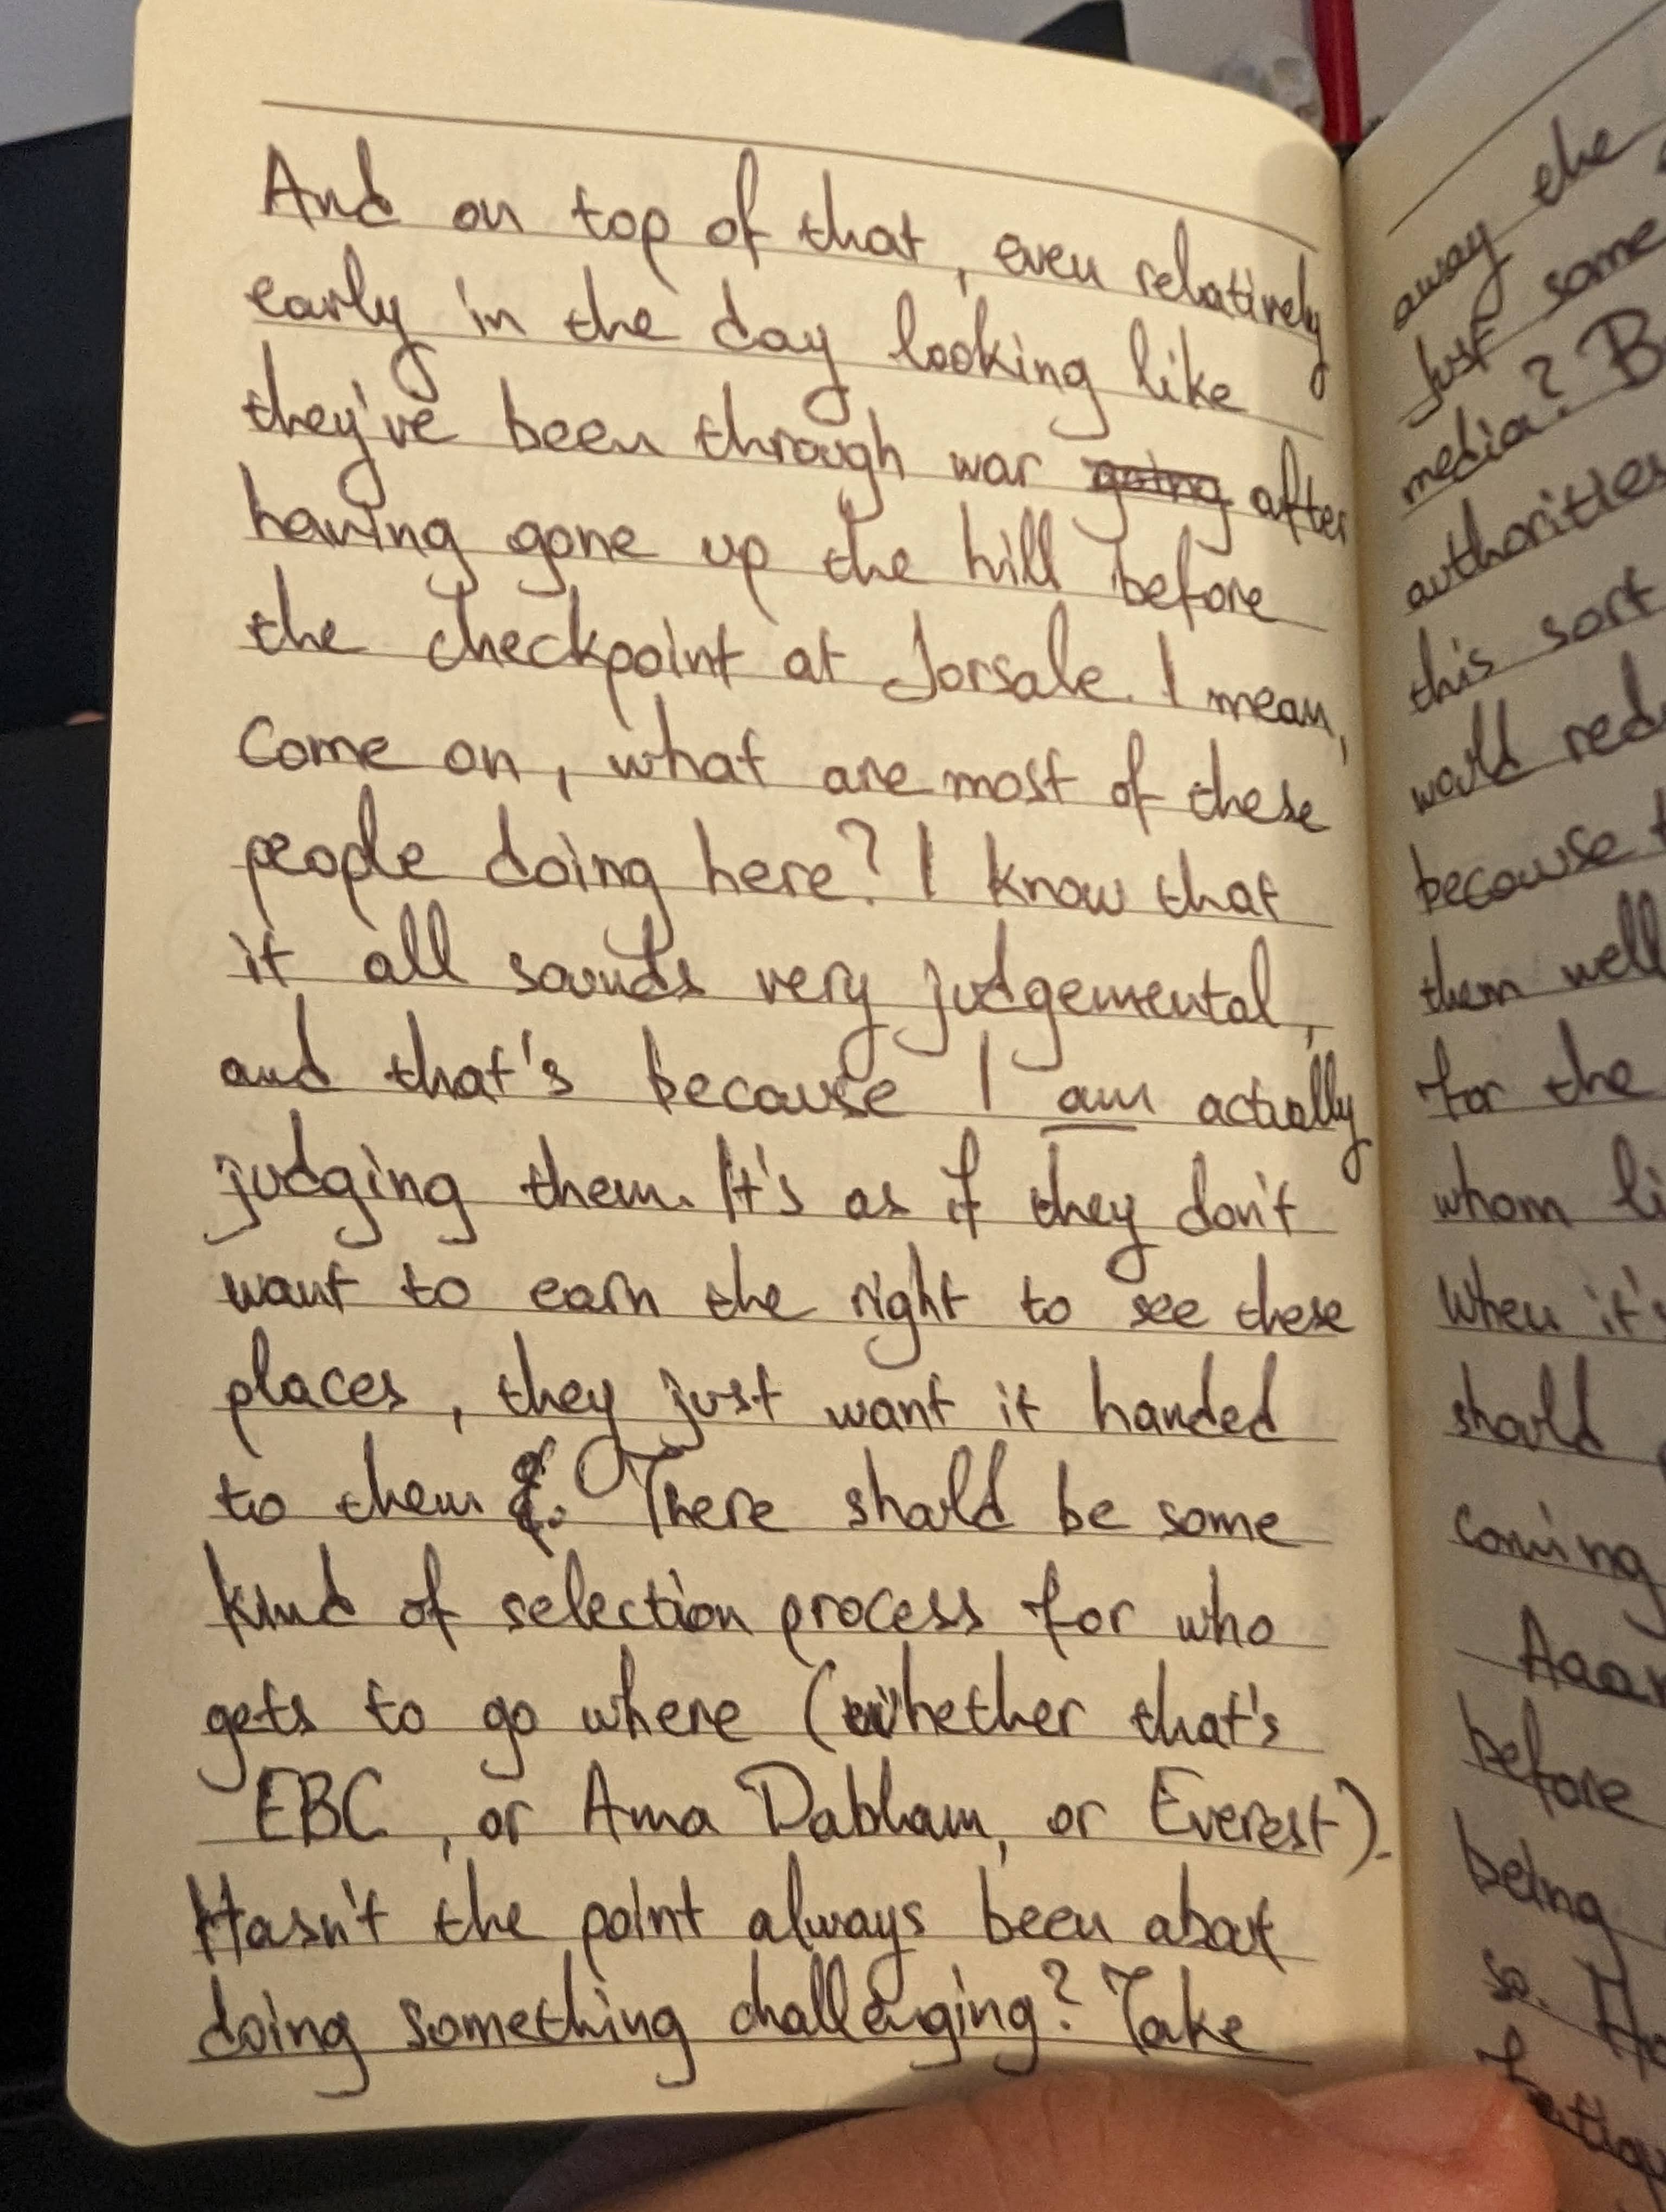 And on top of that, even relatively
early in the day looking like
they've been through war going after
having gone up the hill before
the checkpoint at Jorsale. I mean,
come on, what are most of these
people doing here? I know that
it all sounds very judgemental,
and that's because I am actually
judging them. It's as if they don't
want to earn the right to see these
places, they just want it handed
to them. There should be some
kind of selection process for who
gets to go where (whether that's
EBC, or Ama Dablam, or Everest).
Hasn't the point always been about
doing something challenging? Take
away the
just some
media?
authorities
this sort
would
because
them well
for the
whom
when it's
should
coming
before
being
so.